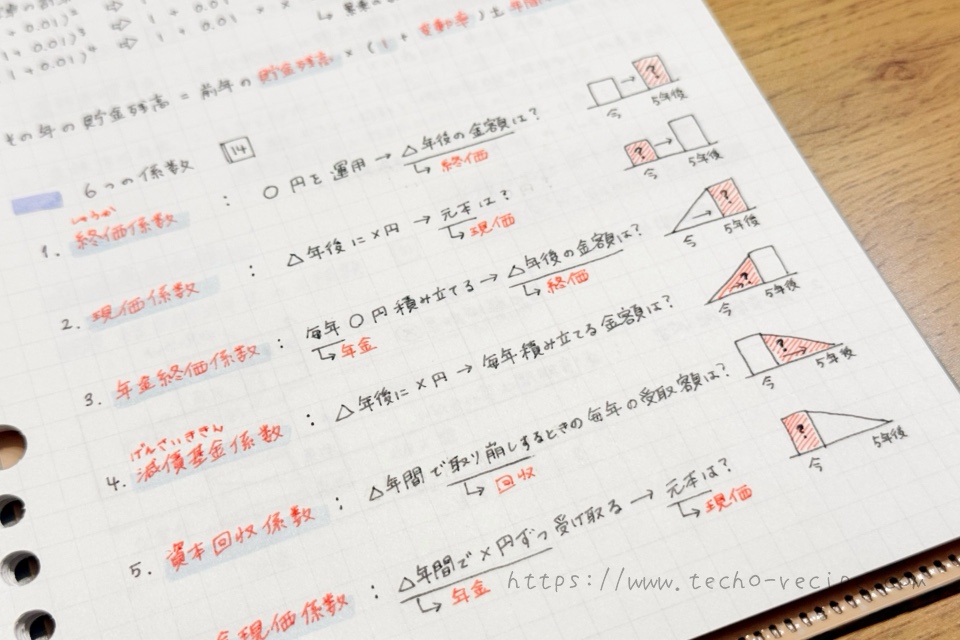 + 0.01)³ ⇒ 1 + 0.01
1 + 0.01)⁴ ⇒ 1 + 0.01 × ×
その年の貯金残高 = 前年の貯金残高 × (1 + 変動率) ± 年間
6つの係数 14
しゅうか
1. 終価係数 : ○円を運用 → △年後の金額は?
↳ 終価
今 5年後
2. 現価係数 : △年後に×円 → 元本は?
↳ 現価
今 5年後
3. 年金終価係数 : 毎年○円積み立てる → △年後の金額は?
↳ 年金 ↳ 終価
今 5年後
げんさいききん
4. 減債基金係数 : △年後に×円 → 毎年積み立てる金額は?
今 5年後
5. 資本回収係数 : △年間で取り崩しするときの毎年の受取額は?
↳ 回収
今 5年後
金現価係数 : △年間で×円ずつ受け取る → 元本は?
↳ 年金 ↳ 現価
今 5年後
https://www.techo-recip